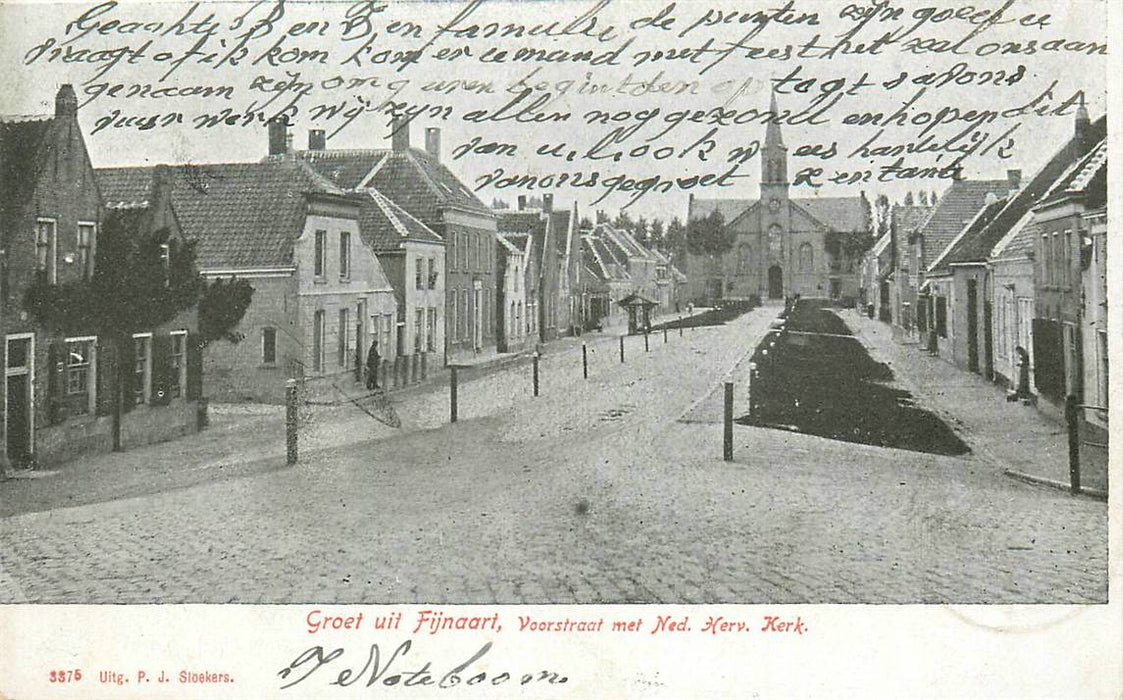 Geachte B en Z en familie, de punten zijn goed u
vraagt of ik kom kom er iemand met feest het zal ons aan
genaam zijn om 9 uren begint den op togt savons
vuur werk wij zijn allen nog gezond en hopen dit
van u. l. ook wees hartelijk
van ons gegroet en tante
Groet uit Fijnaart, Voorstraat met Ned. Herv. Kerk.
3375 Uitg. P. J. Sloekers.
J Noteboom.